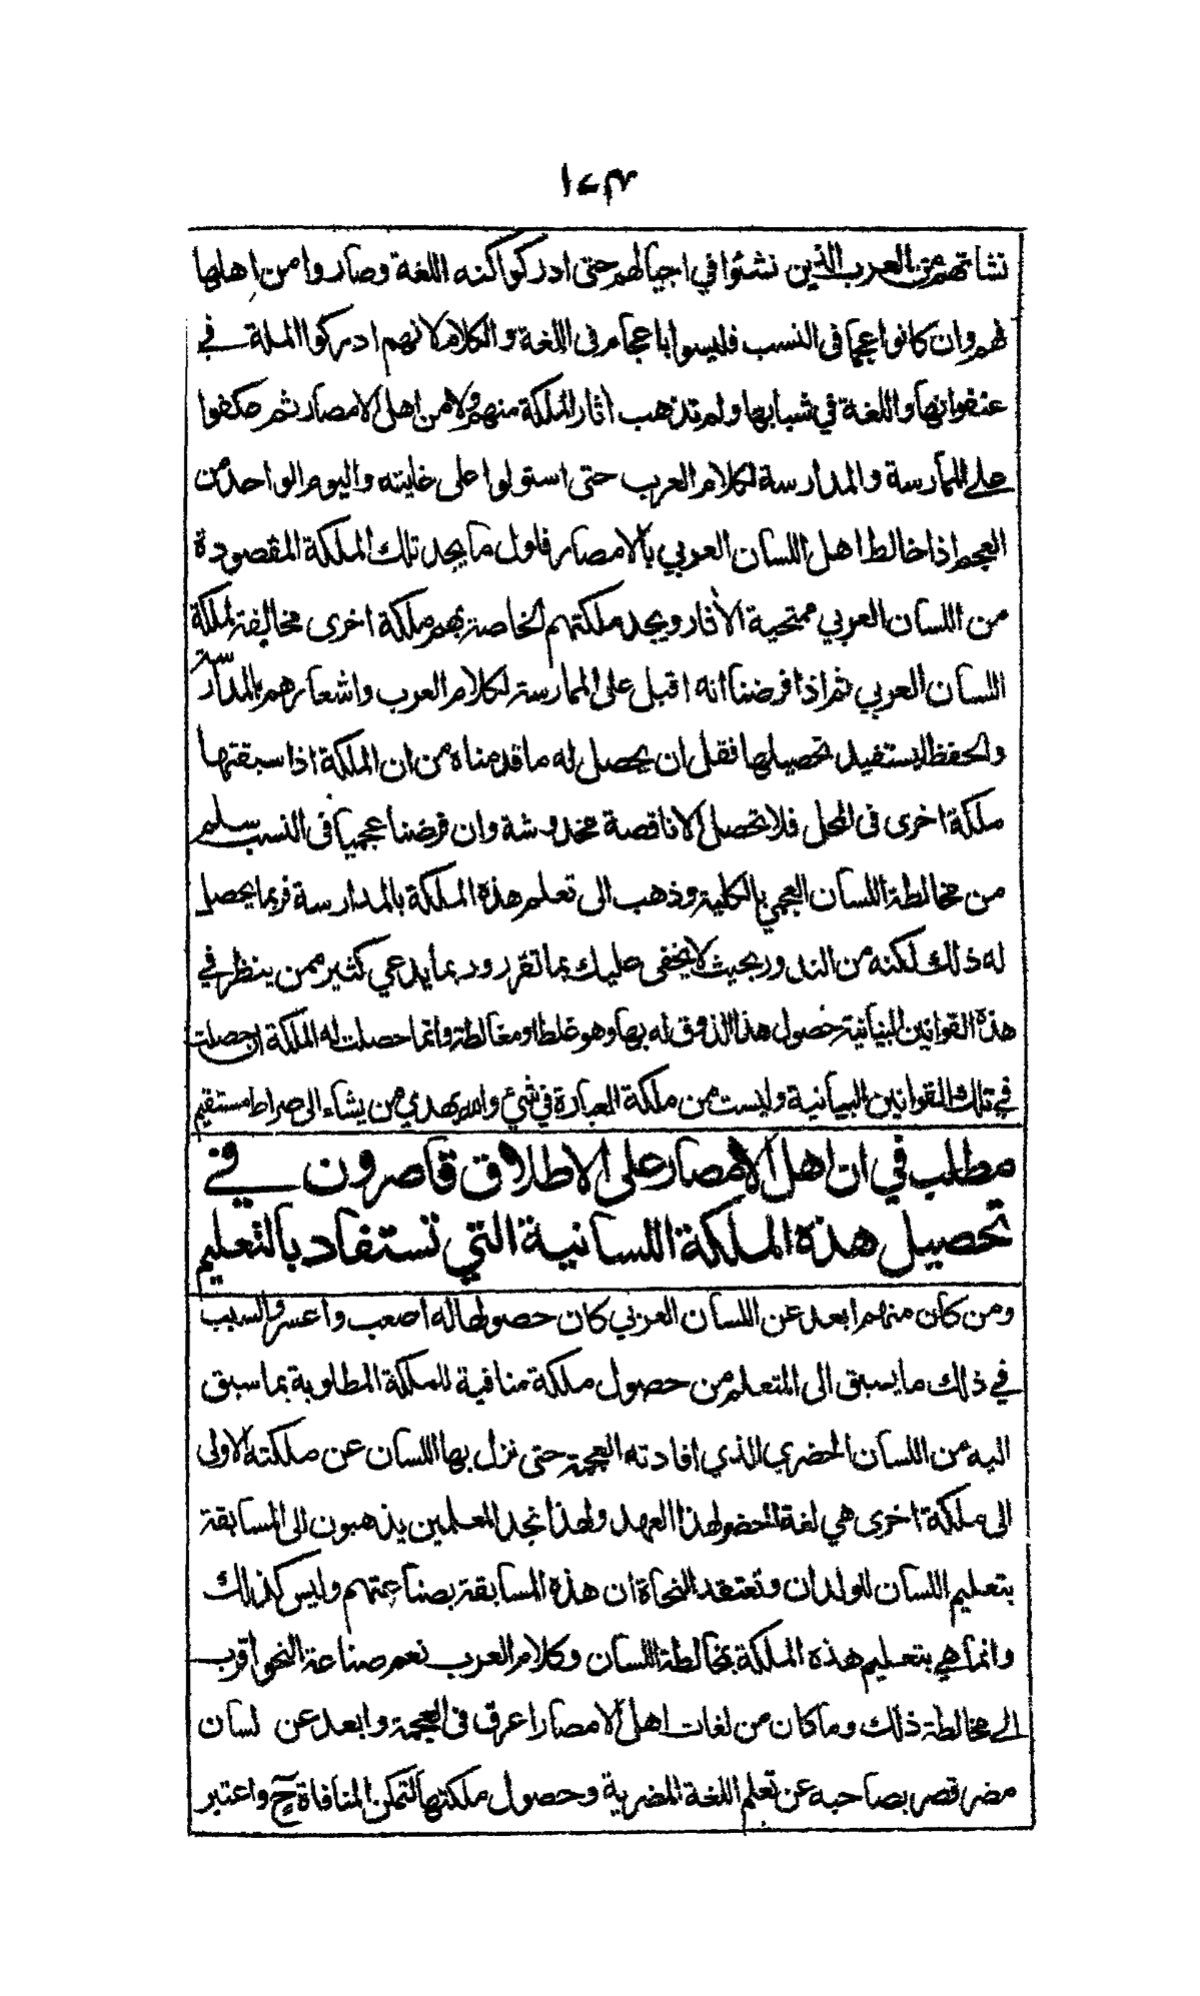 ١٧٣
نشاتهم من العرب الذين نشئوا في اجيالهم حتى ادركوا كنه اللغة وصاروا من اهلها
فهم وان كانوا عجما فى النسب فليسوا باعجام فى اللغة والكلام لانهم ادركوا الملة في
عنفوانها واللغة في شبابها ولم تذهب اثار الملكة منهم ولا من اهل الامصار ثم عكفوا
على الممارسة والمدارسة لكلام العرب حتى استولوا على غايته واليوم الواحد من
العجم اذا خالط اهل اللسان العربي بالامصار فاول ما يجد تلك الملكة المقصودة
من اللسان العربي ممتحية الآثار ويجد ملكتهم الخاصة بهم ملكة اخرى مخالفة لملكة
اللسان العربي ثم اذا فرضنا انه اقبل على الممارسة لكلام العرب واشعارهم بالمدارسة
والحفظ ليستفيد تحصيلها فقل ان يحصل له ما قدمناه من ان الملكة اذا سبقتها
ملكة اخرى فى المحل فلا تحصل الا ناقصة مخدوشة وان فرضنا عجميا فى النسب سلم
من مخالطة اللسان العجمي بالكلية وذهب الى تعلم هذه الملكة بالمدارسة فربما يحصل
له ذلك لكنه من الندور بحيث لا يخفى عليك بما تقرر وربما يدعي كثير ممن ينظر في
هذه القوانين البيانية حصول هذا الذوق له بها وهو غلط او مغالطة وانما حصلت له الملكة ان حصلت
في تلك القوانين البيانية وليست من ملكة العبارة في شيئ والله يهدي من يشاء الى صراط مستقيم
مطلب في ان اهل الامصار على الاطلاق قاصرون في
تحصيل هذه الملكة اللسانية التي تستفاد بالتعليم
ومن كان منهم ابعد عن اللسان العربي كان حصولها له اصعب واعسر والسبب
في ذلك ما يسبق الى المتعلم من حصول ملكة منافية للملكة المطلوبة بما سبق
اليه من اللسان الحضري الذي افادته العجمة حتى نزل بها اللسان عن ملكته الاولى
الى ملكة اخرى هي لغة الحضر لهذا العهد ولهذا نجد المعلمين يذهبون الى المسابقة
بتعليم اللسان للولدان وتعتقد النحاة ان هذه المسابقة بصناعتهم وليس كذلك
وانما هي بتعليم هذه الملكة بمخالطة اللسان وكلام العرب نعم صناعة النحو اقرب
الى مخالطة ذلك وما كان من لغات اهل الامصار اعرق فى العجمة وابعد عن لسان
مضر قصر بصاحبه عن تعلم اللغة المضرية وحصول ملكتها لتمكن المنافاة ح واعتبر